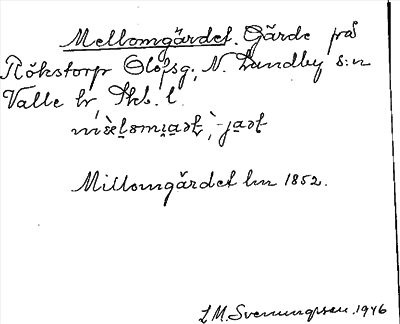 Mellomgärdet. Gärde på
Rökstorp Olofsg., N. Lundby s:n
Valle hd, Skb. l.
Millomgärdet lm 1852.
L.M. Svenungsson. 1946